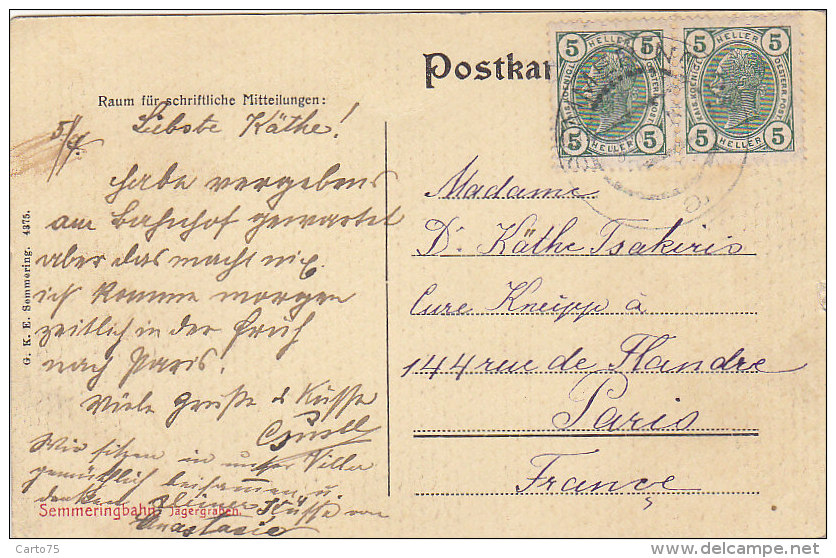 Postkar
Raum für schriftliche Mitteilungen:
5 HELLER 5
5 HELLER 5
5/4.
Liebste Käthe!
habe vergebens
am Bahnhof gewartet
aber das macht nix.
ich komme morgen
zeitlich in der Früh
nach Paris.
Viele Grüße & Küsse
Wir sitzen in unser Villa
gemütlich beisammen u.
denken Deiner Küsse von
Anastasie
Madame
Dr Käthe Tsakiris
Cure Kneipp à
144 rue de Flandre
Paris
France
G. K. E. Semmering. 4375.
Semmeringbahn Jägergraben.
Carto75
www.delcampe.net